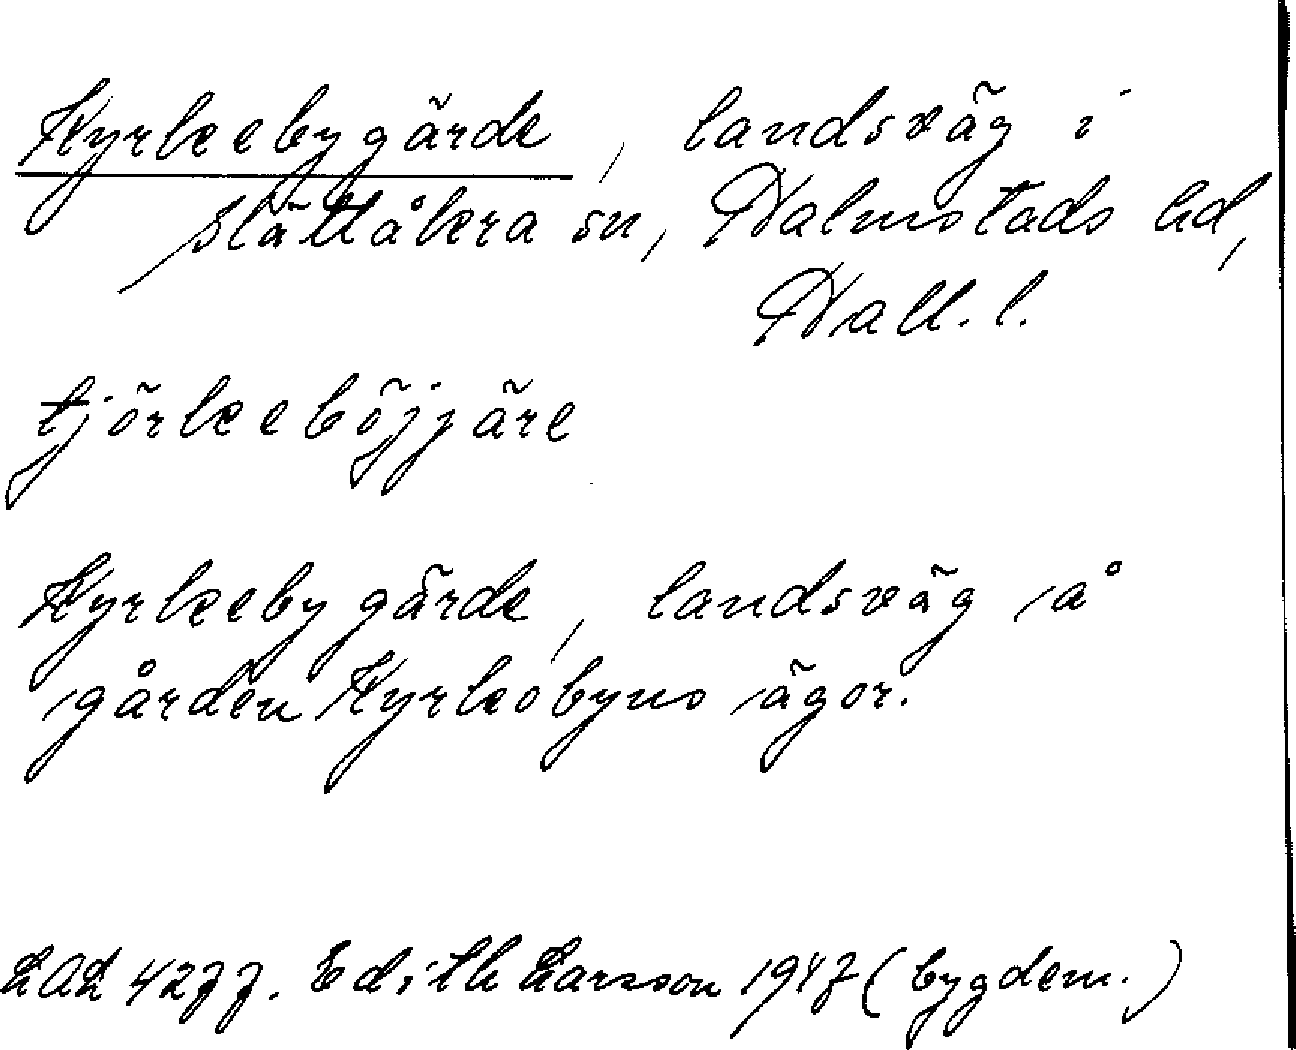 Kyrkebygärde, landsväg i
Slättåkra sn, Halmstads hd,
Hall. l.
tjörkeböjjäre
Kyrkebygärde, landsväg å
gården Kyrkobyns ägor.
LAL 4277. Edith Larsson 1947 (bygdem.)